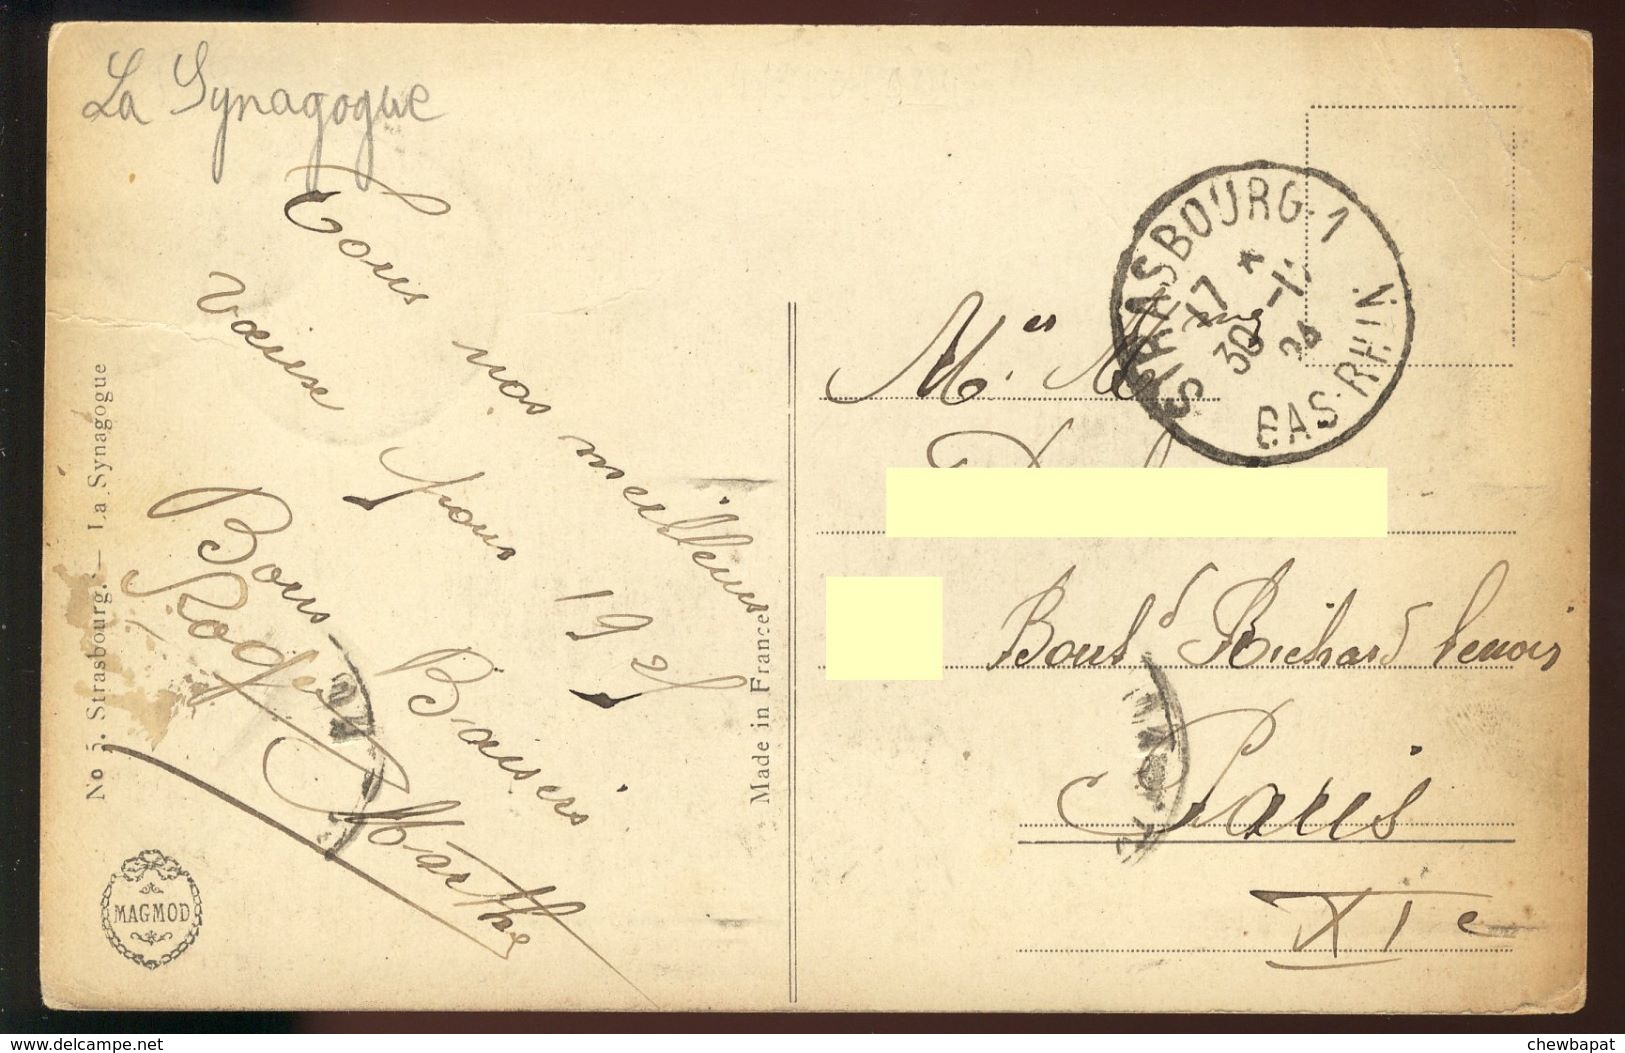 La Synagogue
Tous nos meilleurs
vœux pour 192
Bons Baisers
Roger Marthe
No 5. Strasbourg. — La Synagogue
MAGMOD
Made in France
STRASBOURG-1
17 *
30
BAS-RHIN
M. et M
Boul d Richard lenoir
Paris
XIe
www.delcampe.net
chewbapat